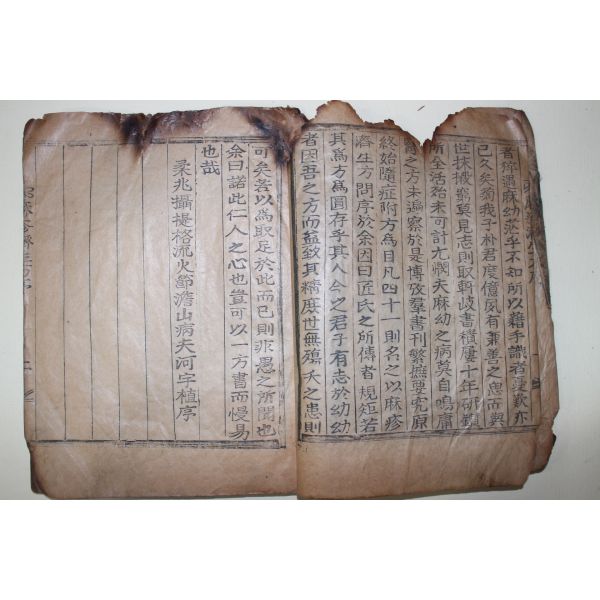 者猝遇麻幼茫乎不知所以藉手識者憂歎亦
已久矣菊我子朴君度億夙有兼善之思而與
世抹摋鬱莫見志則取軒岐書積屢十年研
所全活殆未可計尤憫夫麻幼之病莫自鳴庸
醫之方未遍察於是博攷羣書刊繁摭要究原
終始隨症附方爲目凡四十一則名之以麻疹
濟生方問序於余因曰匠氏之所傳者規矩若
其爲方爲圓存乎其人今之君子有志於幼幼
者因吾之方而益致其精庶世無殤夭之患則
可矣若以爲取足於此而已則非愚之所聞也
余曰諾此仁人之心也豈可以一方書而慢易
也哉
柔兆攝提格流火節澹山病夫河宇植序